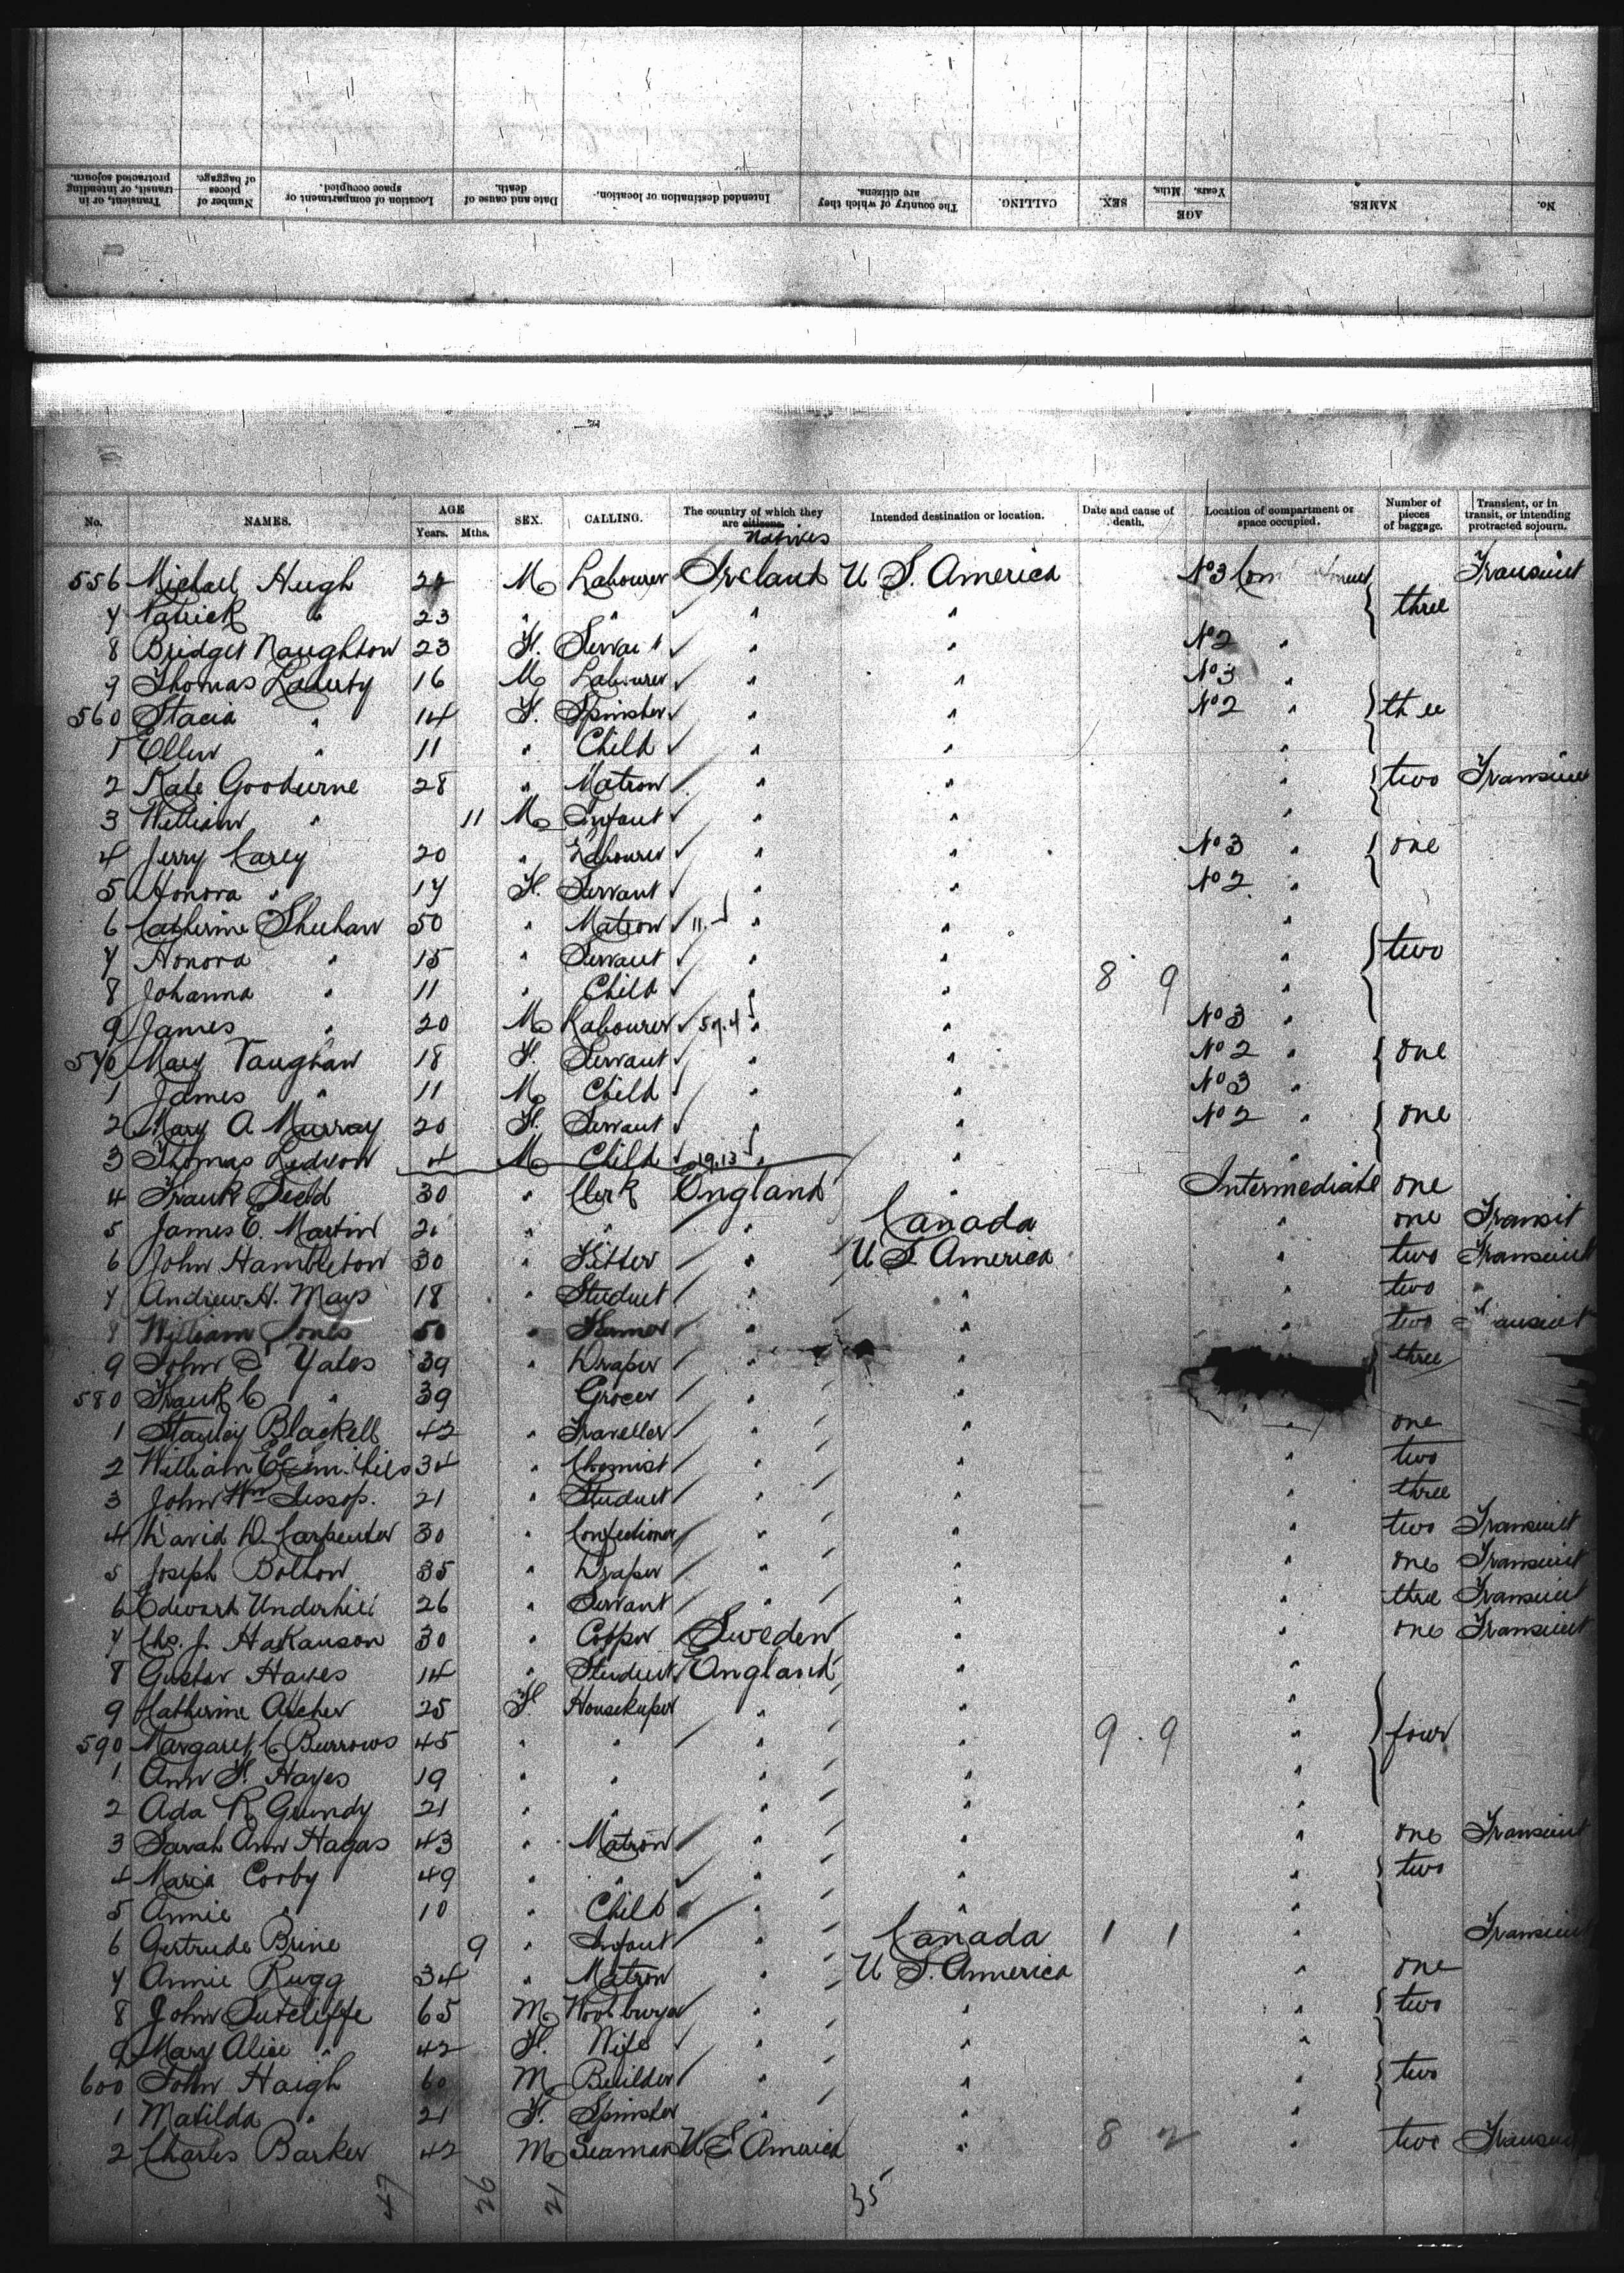 No. NAMES. AGE Years. Mths. SEX. CALLING. The country of which they are citizens. Intended destination or location. Date and cause of death. Location of compartment or space occupied. Number of pieces of baggage. Transient, or in transit, or intending protracted sojourn.
No. NAMES. AGE Years. Mths. SEX. CALLING. The country of which they are citizens. Natives Intended destination or location. Date and cause of death. Location of compartment or space occupied. Number of pieces of baggage. Transient, or in transit, or intending protracted sojourn.
556 Michael Hugh M Labourer Ireland U S. America No 3 Transient
7 Patrick " 23 " " " " three
8 Bridget Naughton 23 F. Servant " " No 2 "
9 Thomas 16 M Labourer " " No 3 "
560 Stacia " 14 F. Spinster " " No 2 " three
1 Ellen " 11 " Child " " "
2 Kate 28 " Matron " " " two Transient
3 William " 11 M Infant " " "
4 Jerry Carey 20 " Labourer " " No 3 " one
5 Honora " 17 F. Servant " " No 2
6 Catherine Sheehan 50 " Matron 11. " " "
7 Honora " 15 " Servant " " " two
8 Johanna " 11 " Child " " 8 9 "
9 James " 20 M Labourer 59.4 " " No 3 "
570 Mary Vaughan 18 F. Servant " " No 2 " one
1 James " 11 M Child " " No 3 "
2 Mary A. Murray 20 F. Servant " " No 2 " one
3 Thomas 4 M Child 19.13 " " "
4 Frank 30 " Clerk England " Intermediate one
5 James E. Martin " " " Canada " one Transit
6 John Hambleton 30 " Fitter " U S America " two Transient
7 Andrew H. Mays 18 " Student " " " two "
8 William Jones 50 " " " " two
9 John S Yates 39 " Draper " " three
580 Frank C " 39 Grocer " "
1 Stanley Blackell 42 " Traveller " " " one
2 William 34 " Chemist " " " two
3 John Wm Jessop. 21 " Student " " three
4 David D. Carpenter 30 " Confectioner " " " two Transient
5 Joseph Bolton 35 " Draper " " " one Transient
6 Edward Underhill 26 " Servant " " " three Transient
7 Chs. J. Hakanson 30 " Sweden " " one Transient
8 Gustav 14 " Student England " "
9 Catherine Archer 25 F Housekeeper " " "
590 Margaret C Burrows 45 " " " " 9 . 9 " four
1 Ann F. Hayes 19 " " " " "
2 Ada R Grundy 21 " " " " "
3 Sarah Ann Hagas 43 " Matron " " " one Transient
4 Maria Corby 49 " " " " " two
5 Annie " 10 " Child " " "
6 Gertrude Brine 9 " Infant " Canada 1 1 " Transient
7 Annie Rugg 34 " Matron " U S. America " one
8 John Sutcliffe 65 M " " " two
9 Mary Alice " 42 F. Wife " " "
600 John Haigh 60 M Builder " " " two
1 Matilda " 21 F. Spinster " " "
2 Charles Barker 42 M Seaman U S America " 8 2 " two Transient
47 26 21 35